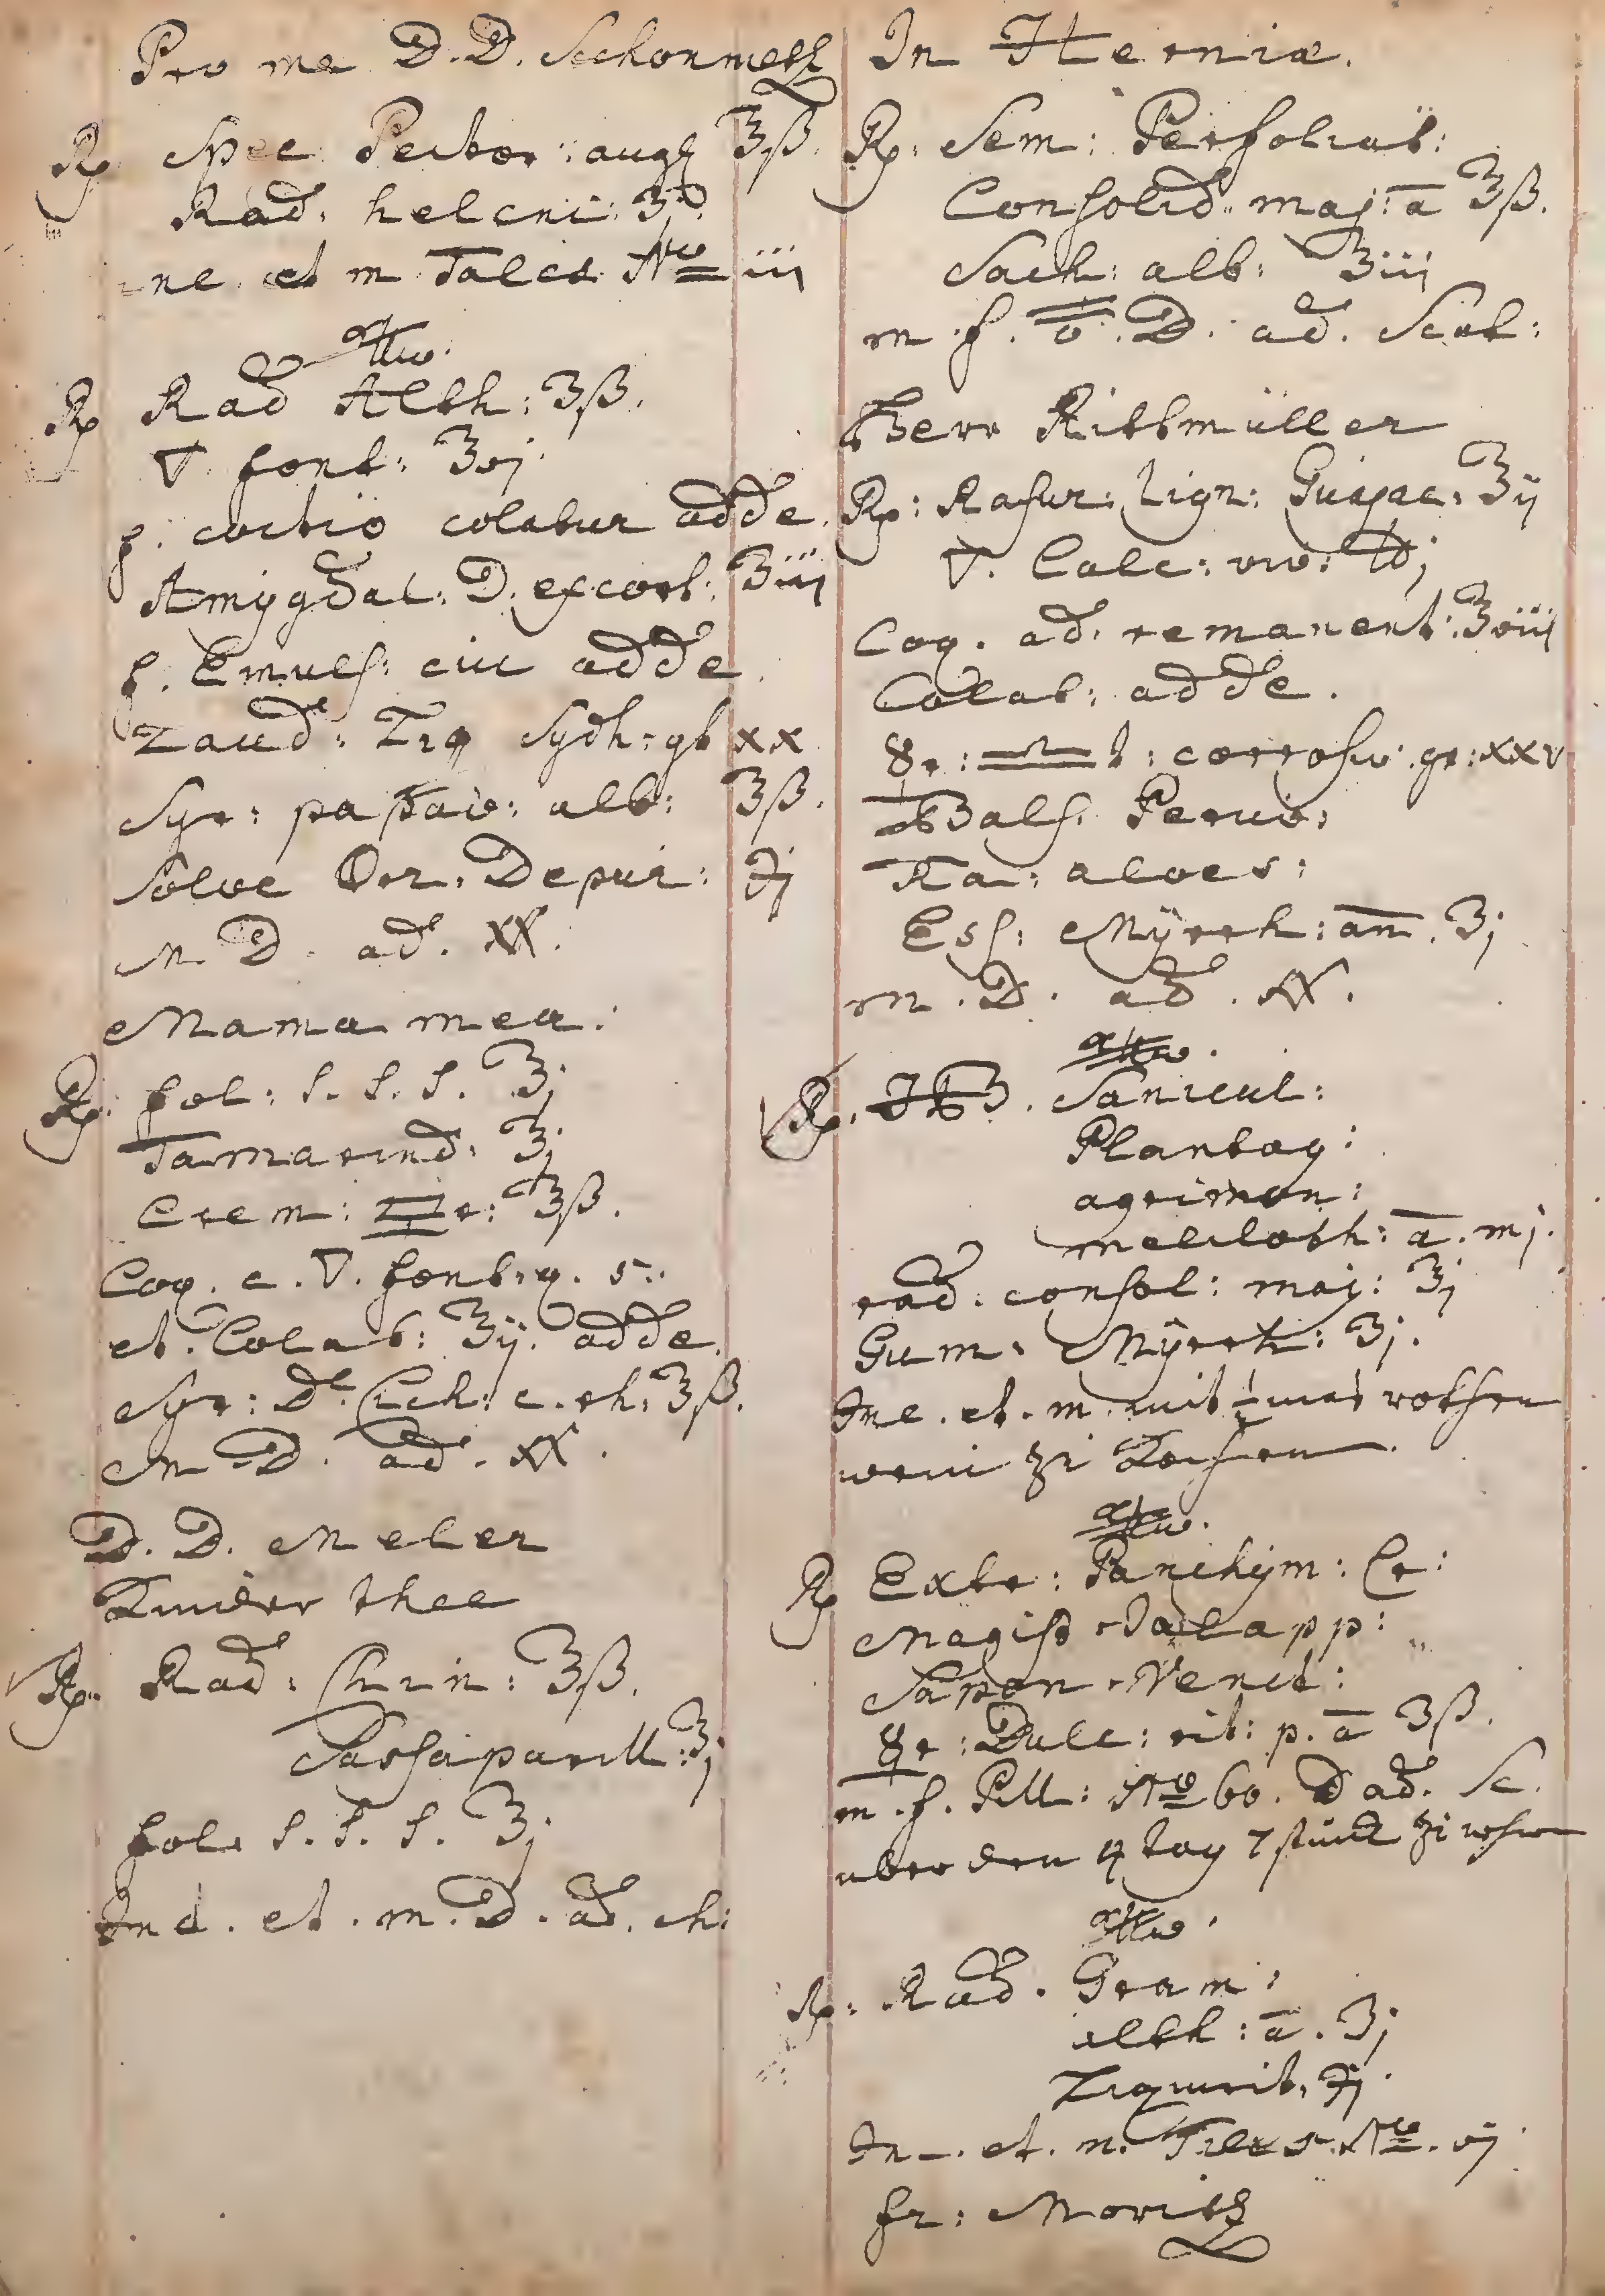 Pro me D. D. Schonmetz
Rp Spec Pector: aug ʒß.
Rad. heleni: ʒ
ne et m Tales No iij
Rp Rad Alth: ʒß.
▽ font: ʒvj.
f. coctio colatur adde.
Amÿgdal: D. excort: ʒiij
f. Emuls: cui adde
Laud: Liq Sydh: gt xx
Syr: papav: alb: ʒß.
Solve Depur: ℈j
M D. ad.
Mama mea:
Rp. fol: S. S. S. ʒj
Tamarind: ʒj
Crem: ʒß.
Coq. c. ▽. font. q. s.
et. Colat: ʒij. adde.
Syr: De Cich: c. rh: ʒß.
M. D. ad.
D. D. Meler
Kinder thee
Rp. Rad: Chin: ʒß.
Sarsaparill: ʒj
fol. S. S. S. ʒj
Inc. et. m. D. ad. ch:
In Herniæ.
Rp. Sem: Perfoliat:
Consolid. maj: a ʒß.
Sach: alb: ʒiij
m. f. D. ad. Scat:
Herr Rittmüller
Rp: Rasur: Lign: Guajac: ʒij
▽. Calc: viv: ℔j
Coq. ad. remanent: ʒviij
Colat: adde.
☿r: corrosiv: gr: xxv
Bals. Peruv:
Ra: aloes:
Ess: Mÿrrh: an. ʒj
m. D. ad.
Rp. Sanicul:
Plantag:
agrimon:
meliloth: a. mj.
rad. consol: maj: ʒj
Gum. Mÿrrh: ʒj.
Inc. et. m. mit ½ mas rothen
wein zu Kochen.
Rp Extr: Panchÿm: Cr:
Magist Jalapp:
Sapon. Venet:
☿r: Dulc: rit: p. a ʒß.
m. f. Pill: No 60. D ad. Sc.
uber den 4 tag 7 stück zu
Rp: Rad. Gram:
alth: a. ʒj
Liquirit, ℈j.
In. et. m. Tales No. vj
fr: Moritz